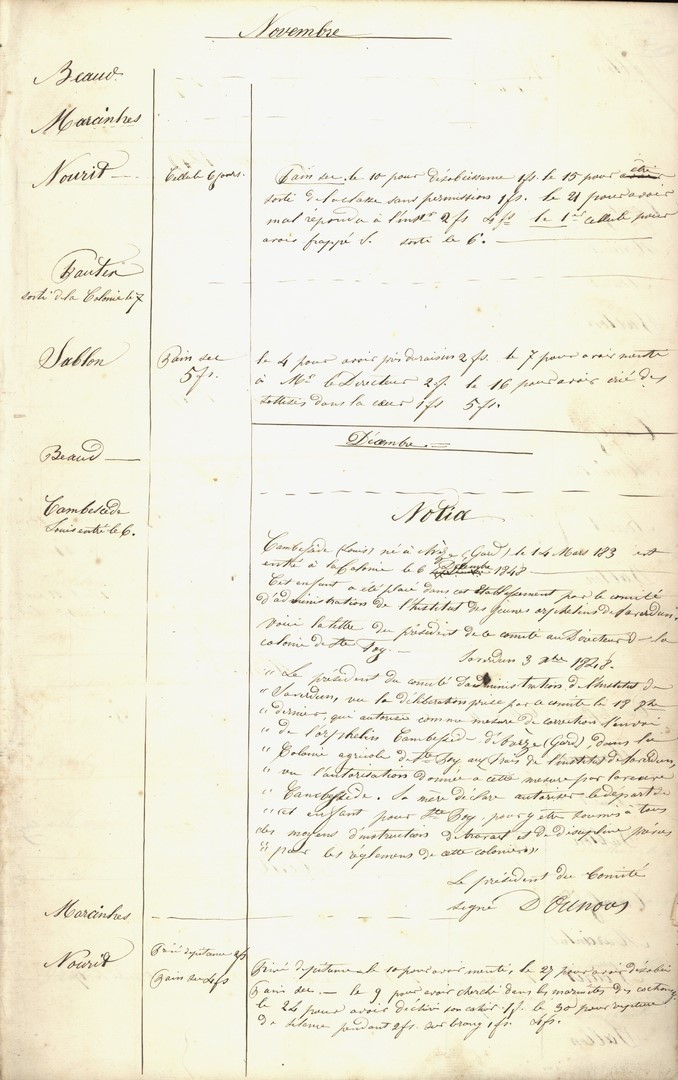 Novembre
Beaud
Marcinhes
Nourit Cellule 6 jours. Pain sec. le 10 pour désobéissance 1 fs. le 15 pour être
sorti de la classe sans permissions 1 fs. le 21 pour avoir
mal répondu à l'inst 2 fs 4 fs le 1er cellule pour
avoir frappé S. sorti le 6.
sorti de la Colonie le 7
Sablon Pain sec 5 fs. le 4 pour avoir pris du raisin 2 fs. le 7 pour avoir menti
à Mr le Directeur 2 f. le 16 pour avoir crié des
sottises dans la cour 1 fs 5 fs.
Décembre.
Beaud
Cambessède
Louis entré le 6.
Notice
Cambessède (Louis) né à (Gard) le 14 Mars 183 est
entré à la Colonie le 6 Décembre 1848
Cet enfant a été placé dans cet établissement par le comité
d'administration de l'Institut des jeunes orphelins de Saverdun,
voici la lettre du président de ce comité au Directeur de la
colonie de Ste Foy.
Saverdun 3 xbre 1848.
" Le président du comité d'administration de l'Institut de
" Saverdun, vu la délibération prise par ce comité le 18 9bre
" dernier, qui autorise comme mesure de correction l'envoi
" de l'orphelin Cambessède (Gard), dans la
" Colonie agricole de Ste Foy aux frais de l'institut de Saverdun,
" vu l'autorisation donnée a cette mesure par la veuve
" Cambessède. Sa mère déclare autoriser le départ de
" cet enfant pour Ste Foy, pour y être soumis à tous
des moyens d'instruction de travail et de discipline prévus
" par les règlemens de cette colonie »
Le président du Comité
signé
Marcinhes
Nourit Privé de pitance 2 fs
Pain sec 4 fs
Privé de pitance le 10 pour avoir menti, le 27 pour avoir désobéi
Pain sec — le 9 pour avoir cherché dans les marmites des cochons
le 24 pour avoir déchiré son cahier 1 f. le 30 pour rupture
de silence pendant 2 fs. 1 fs. 4 fs.